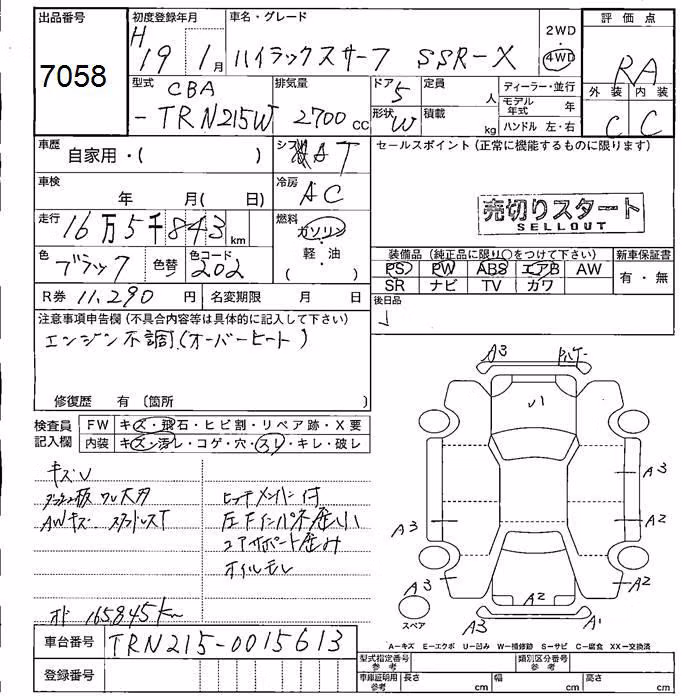 出品番号
7058
初度登録年月
H 19 年 1 月
車名・グレード
ハイラックスサーフ SSR-X
2WD
4WD
評価点
RA
外装 内装
C C
型式
CBA
-TRN215W
排気量
2700 cc
ドア 5
形状 W
定員 人
積載 kg
ディーラー・並行
モデル年式 年
ハンドル 左・右
車歴
自家用・( )
シフト
AT
セールスポイント(正常に機能するものに限ります)
車検
年 月( 日)
冷房
AC
売切りスタート
SELLOUT
走行
16万5千843km
燃料
ガソリン
軽・油
( )
色
ブラック
色替
色コード
202
装備品(純正品に限り○をつけて下さい)
PS PW ABS エアB AW
SR ナビ TV カワ
新車保証書
有・無
R券 11,290 円
名変期限 月 日
後日品
注意事項申告欄(不具合内容等は具体的に記入して下さい)
エンジン不調(オーバーヒート)
修復歴 有(箇所 )
検査員
記入欄
FW キズ・飛石・ヒビ割・リペア跡・X要
内装 キズ・汚レ・コゲ・穴・スレ・キレ・破レ
キズU
AWキズ スタッドレスT
ヒッチメンバー付
コアサポート歪み
オイルモレ
オド 165845km
車台番号 TRN215-0015613
登録番号
A3
A3
A2
A3
A3
A2
A2
A3
A1
スペア
A-キズ E-エクボ U-凹み W-補修跡 S-サビ C-腐食 XX-交換済
型式指定番号
参考
類別区分番号
参考
車庫証明用
参考
長さ cm
幅 cm
高さ cm